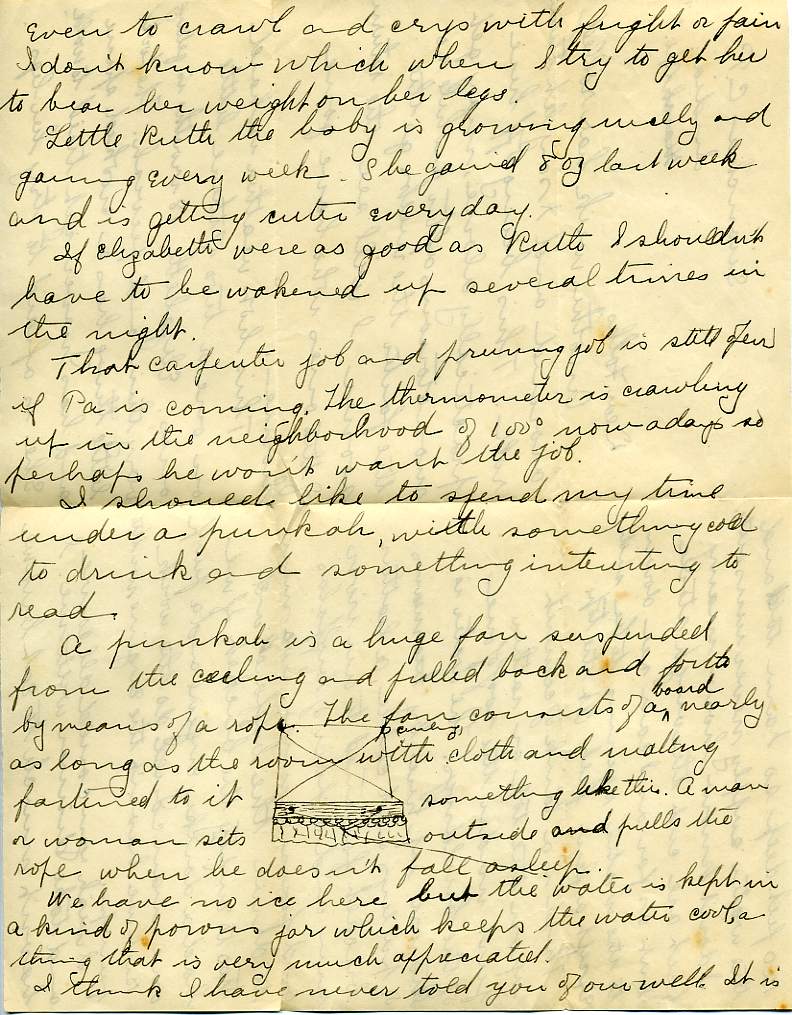 Even to crawl and crys with fright or pain
I don't know which when I try to get her
to bear her weight on her legs.
Little Ruth the baby is growing nicely and
gaining every week. She gained 8 oz last week
and is getting cuter everyday.
If Elizabeth were as good as Ruth I shouldn't
have to be wakened up several times in
the night.
That carpenter job and pruning job is still open
if Pa is coming. The thermometer is crawling
up in the neighborhood of 100° nowadays so
perhaps he won't want the job.
I should like to spend my time
under a punkah, with something cold
to drink and something interesting to
read.
A punkah is a huge fan suspended
from the ceiling and pulled back and forth
by means of a rope. The fan consists of a board nearly
ceiling
as long as the room with cloth and matting
fastened to it something like this. A man
or woman sits outside and pulls the
rope when he doesn't fall asleep.
We have no ice here but the water is kept in
a kind of porous jar which keeps the water cool, a
thing that is very much appreciated.
I think I have never told you of our well. It is